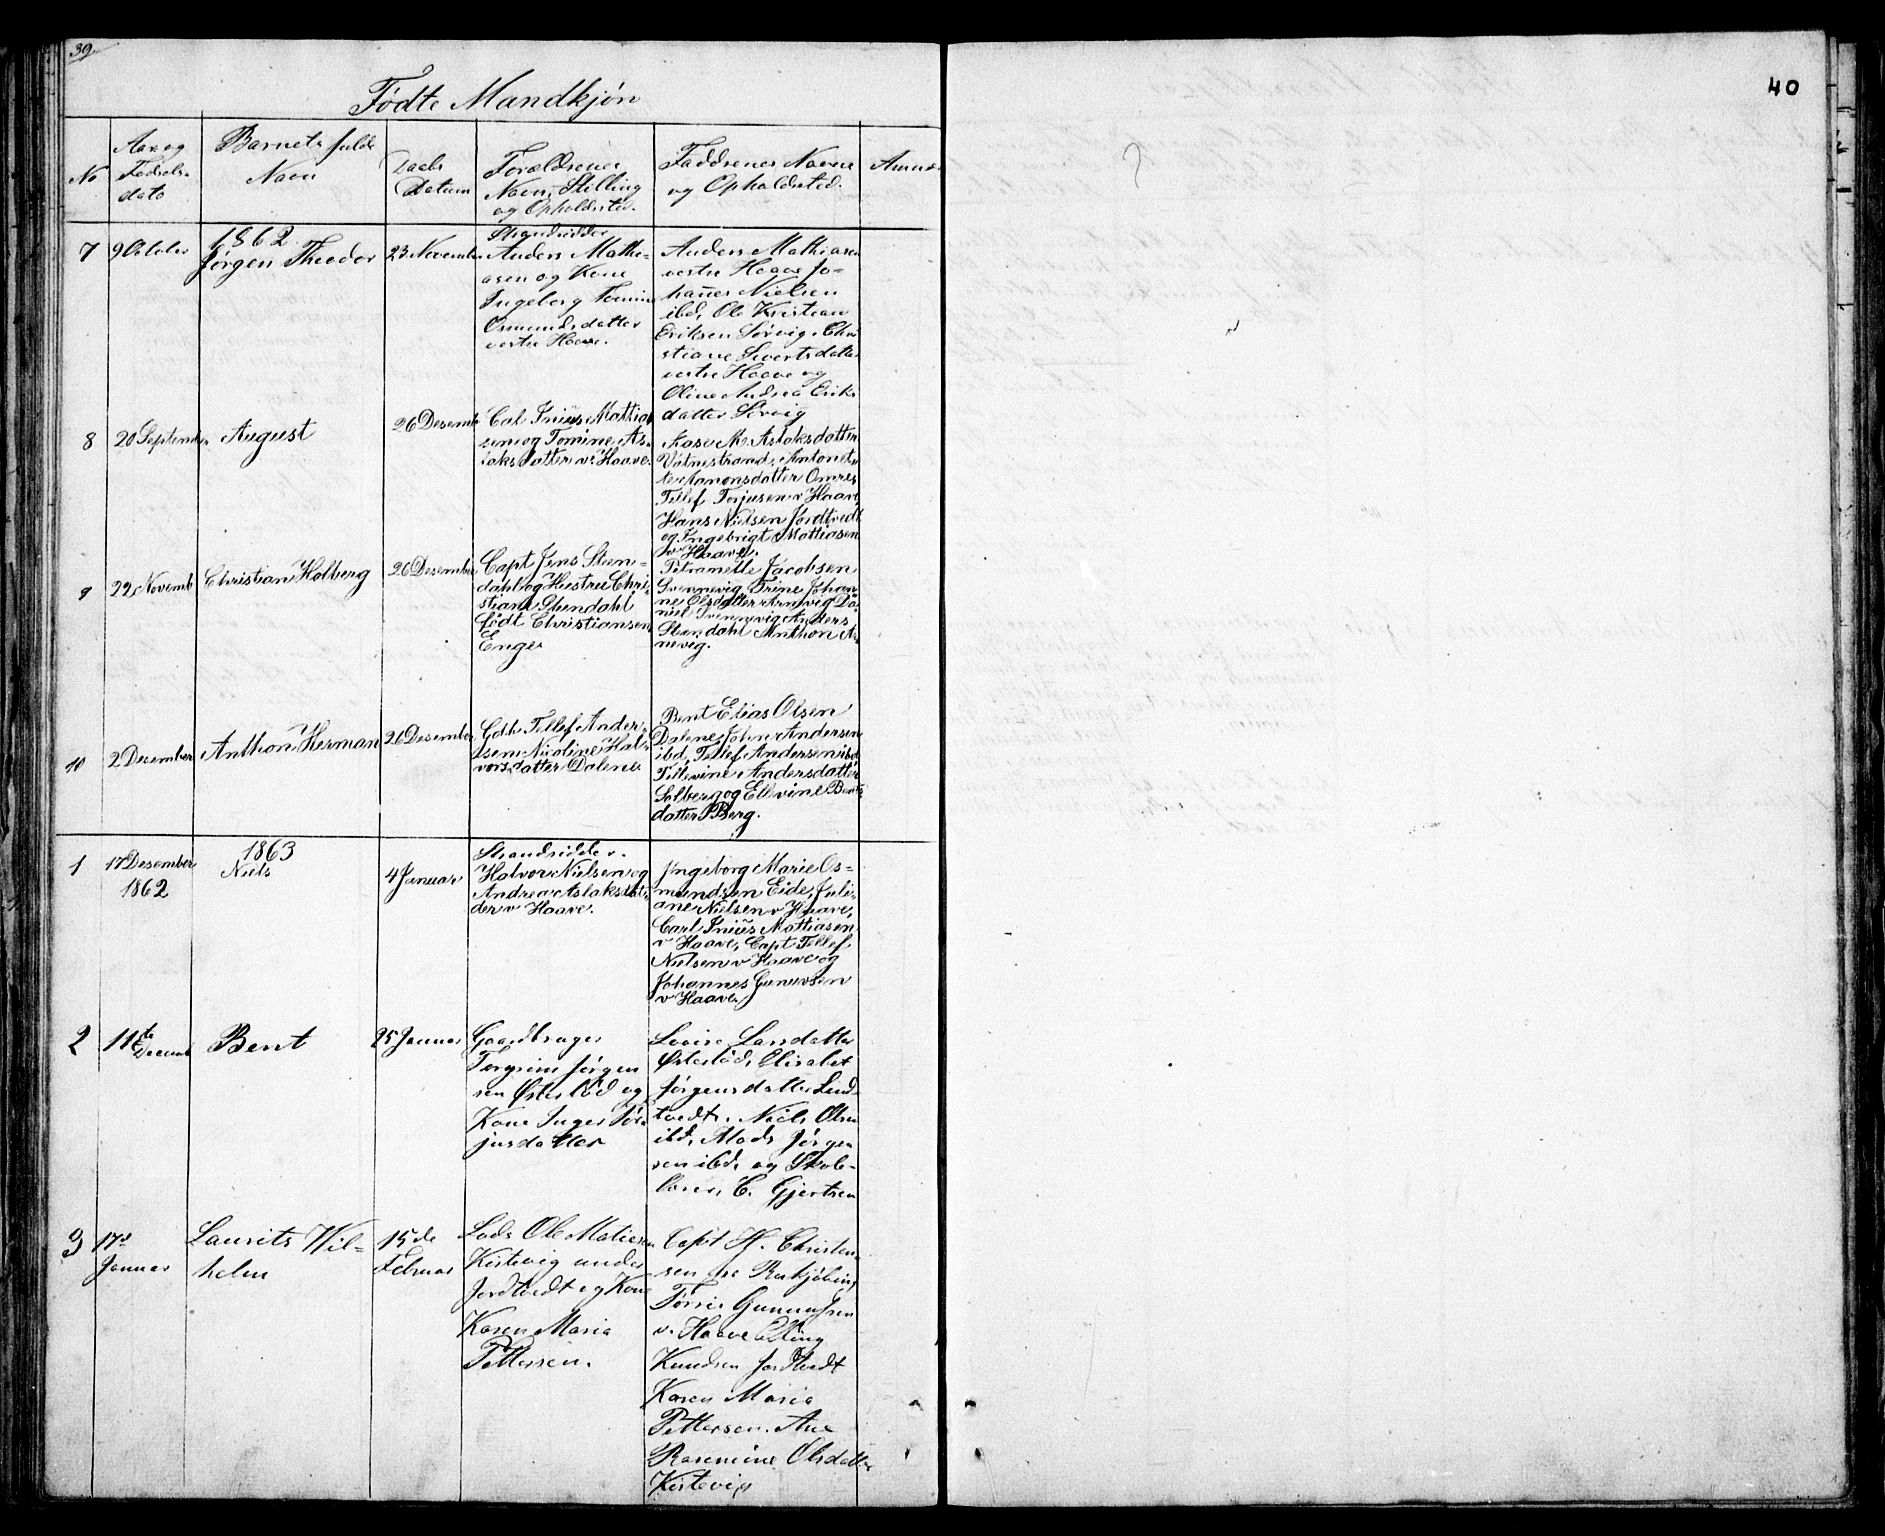 39
40
Fødte Mandkjøn
No
Aar og
Fødsels-
dato
Barnets fulde
Navn
Daabs
Datum
Forældrenes
Navn, Stilling
og Opholdsted.
Faddrenes Navne
og Opholdsted.
Anmæ
7
9 Octobr
1862.
Jørgen Theodor
23 November
Strandsidder
Anders Mathi-
asen og Kone
Ingeborg Tomine
Osmundsdatter
vestre Haave.
Anders Mathiasen
vestre Haave Jo-
hannes Nielsen
ibd, Ole Kristian
Eriksen Sørvig, Chri
stiane Sivertsdatter
vestre Haave og
Oline Andrea Eriks
datter Sørvig
8
20 September
August
26 Desemb
Cal Iniüs Mattias
sen og Tomine As-
laksdatter v. Haave.
Aase M. Aslaksdatter
Vatnestrand, Antonet-
te Aanonsdatter Omres
Tellef Torjusen v Haave
Hans Nielsen Jordtvedt
og Ingebrigt Mattiasen
v Haave.
9
22 Novemb
Christian Holberg
26 Desember
Capt Jens Steen-
dahl og Hustru Chri-
stiane Stendahl
født Christiansen
Enge
Petranette Jacobsen
Svennevig Trine Johan
ne Olsdatter Arnevig Da-
niel Svennevig Anders
Stendahl Anthon Ar
nevig.
10
2 Desember
Anthon Herman
26 Desember
Gdb Tellef Ander-
sen Nicoline Hal-
vorsdatter Dalene
Bent Elias Olsen
Dalene John Andersen
ibd, Tellef Andersen ibd
Tellevine Andersdatter
Solberg og Ellevine Bents
datter Berg.
1
17 Desember
1862
1863
Niels
4 Januar
Strandsidder.
Halvor Nielsen og
Andrea Aslaksdat-
der v Haave.
Ingeborg Marie Os-
mundsen Eide, Juli-
ane Nielsen v Haave,
Carl Iniüs Mattiasen
v Haave, Capt Tellef
Nielsen v Haave og
Johannes Gunuvsen
v Haave
2
11te
Decemb
Bent
25 Januar
Gaardbruger
Torgrim Jørgen
sen Østeslöd og
Kone Inger Tor-
jusdatter
Lovise Larsdatter
Østeslöd, Elisabet
Jørgensdatter Lund-
tvedt, Niels Olsen
ibd, Mads Jørgen
sen ibd, og Skole-
lærer, C. Gjertsen
3
17d
Januar
Laurits Wil-
helm
15 de
Februar
Lods Ole Matiesen
Kistevig under
Jordtvedt og Kone
Karen Maria
Pettersen.
Capt H. Christen-
sen fra Rukjøbing
Tørris Gunnufsen
v. Haave Elling
Knudsen Jordtvedt
Karen Maria
Pettersen. Ane
Rasemine Olsdatter
Kistevig